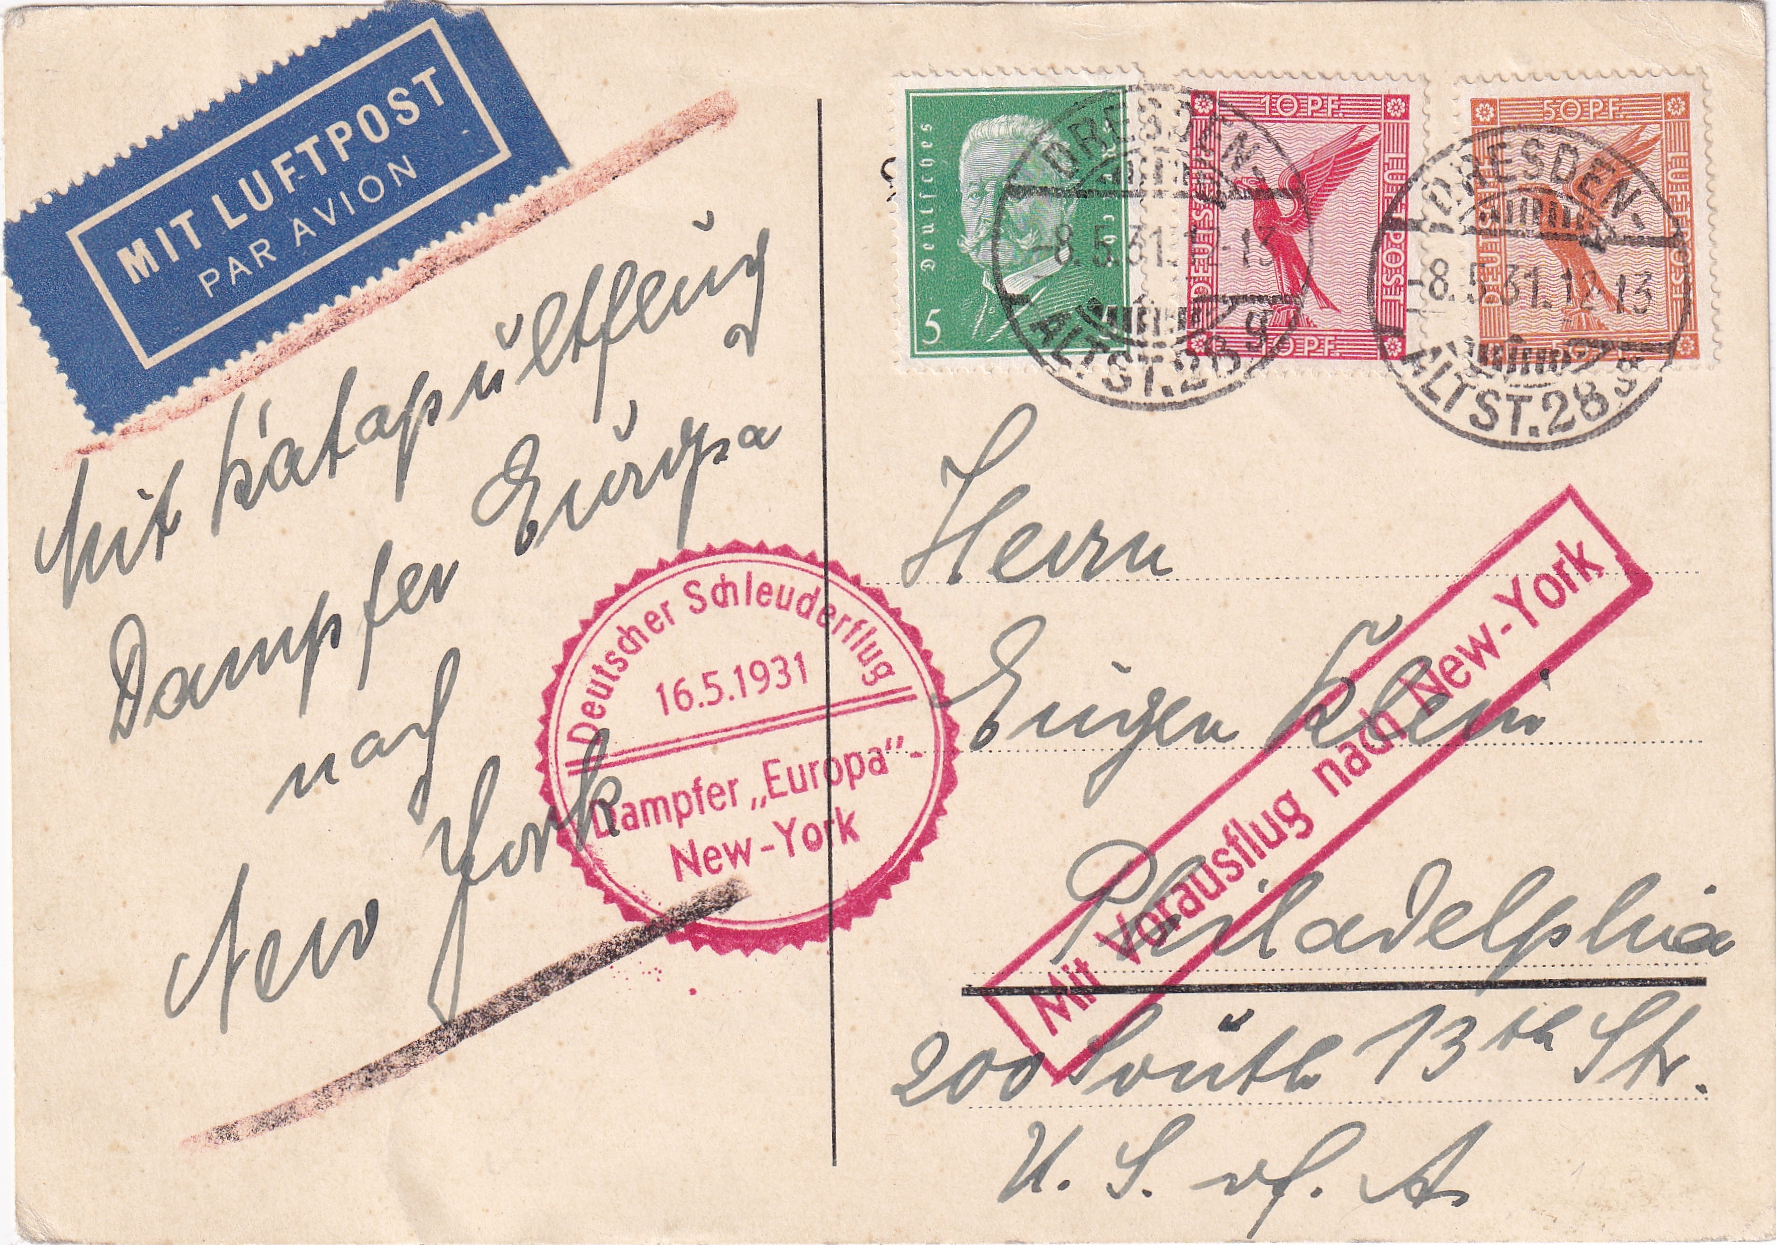 MIT LUFTPOST
PAR AVION
Mit Katapultflug
Dampfer Europa
nach
New York
Deutscher Schleuderflug
16.5.1931
Dampfer „Europa"-
New-York
Deutsches Reich
5
10 PF.
DEUTSCHE
LUFTPOST
10 PF.
50 PF.
DEUTSCHE
LUFTPOST
DRESDEN-
-8.5.31.12-13
ALTST. 28 g
DRESDEN-
-8.5.31.12-13
ALTST. 28 g
Herrn
Eugen Klein
Philadelphia
200 South 13th Str.
U. S. of. A.
Mit Vorausflug nach New-York